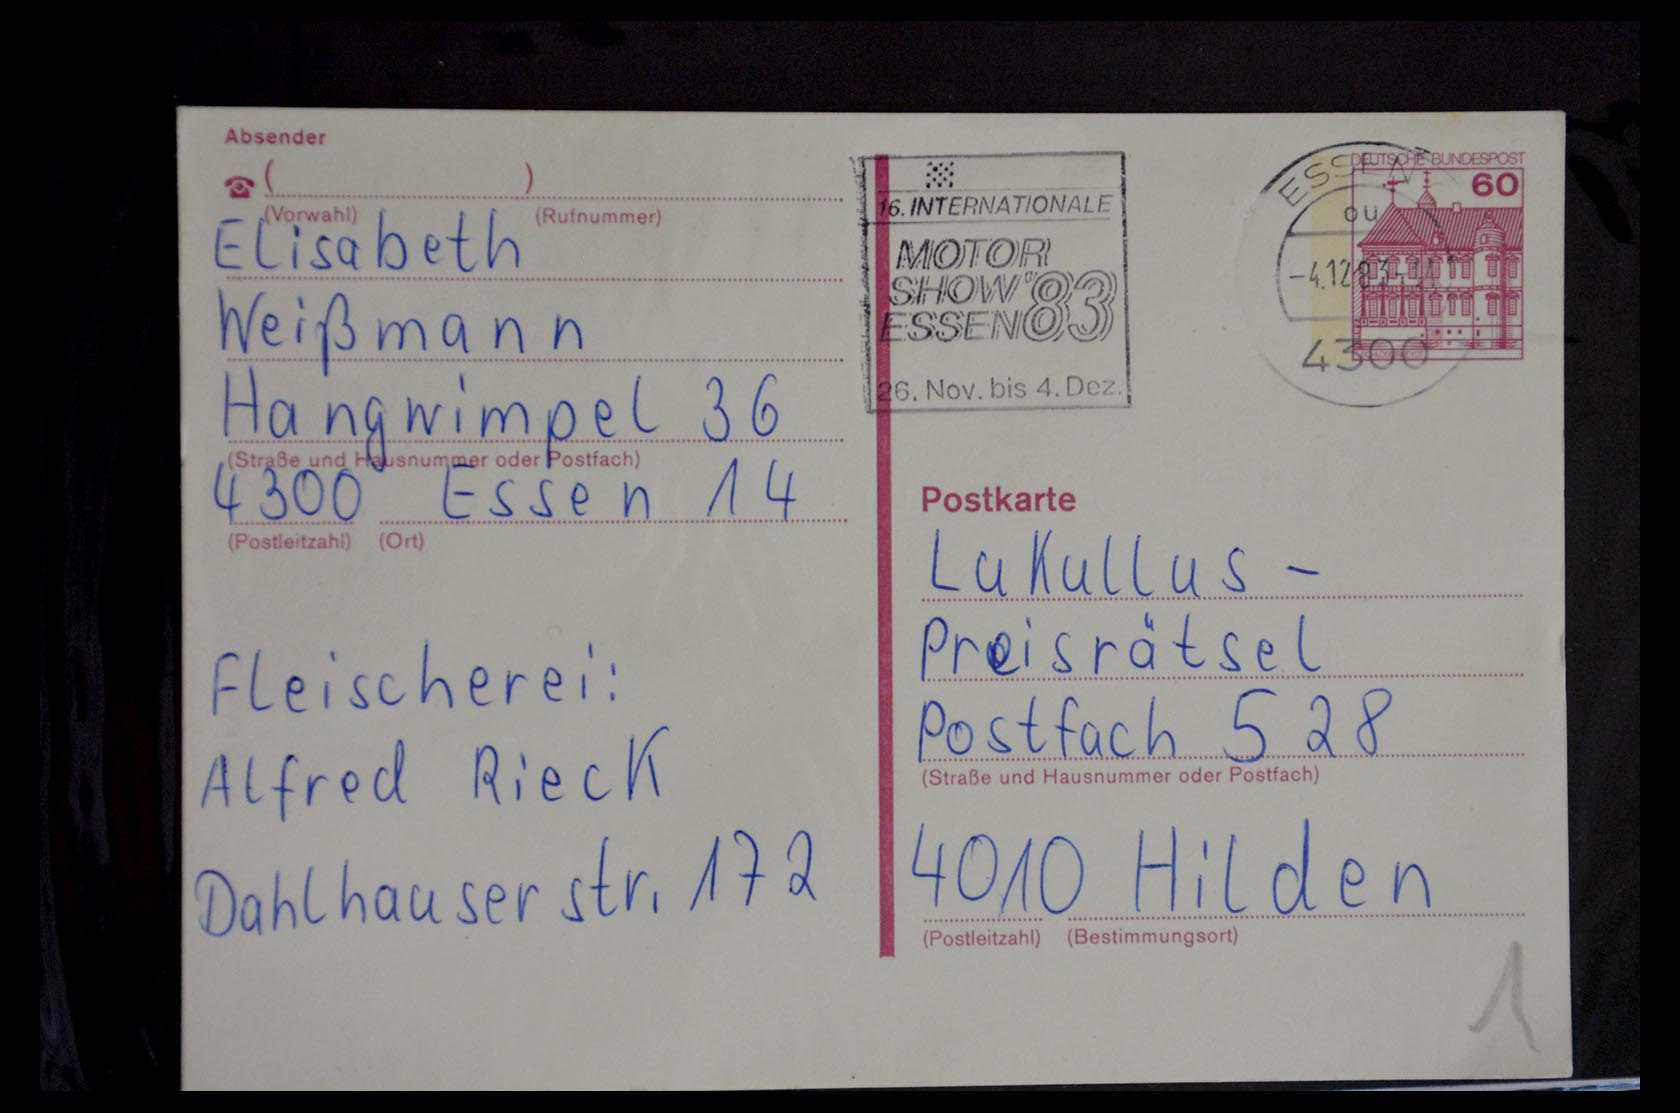 Absender
( )
(Vorwahl) (Rufnummer)
Elisabeth
Weißmann
Hangwimpel 36
(Straße und Hausnummer oder Postfach)
4300 Essen 14
(Postleitzahl) (Ort)
Fleischerei:
Alfred Rieck
Dahlhauser str. 172
16. INTERNATIONALE
MOTOR
SHOW
ESSEN '83
26. Nov. bis 4. Dez.
ESSEN
ou
-4.12.83-
4300
DEUTSCHE BUNDESPOST
60
Postkarte
Lukullus -
Preisrätsel
Postfach 528
(Straße und Hausnummer oder Postfach)
4010 Hilden
(Postleitzahl) (Bestimmungsort)
1